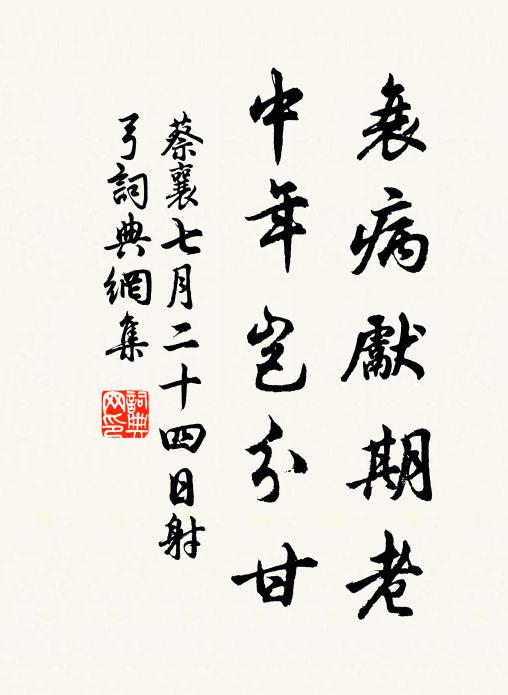 衰病獻期老
中年豈分甘
蔡襄七月二十四日射
弓詞典網集
詞典
网印